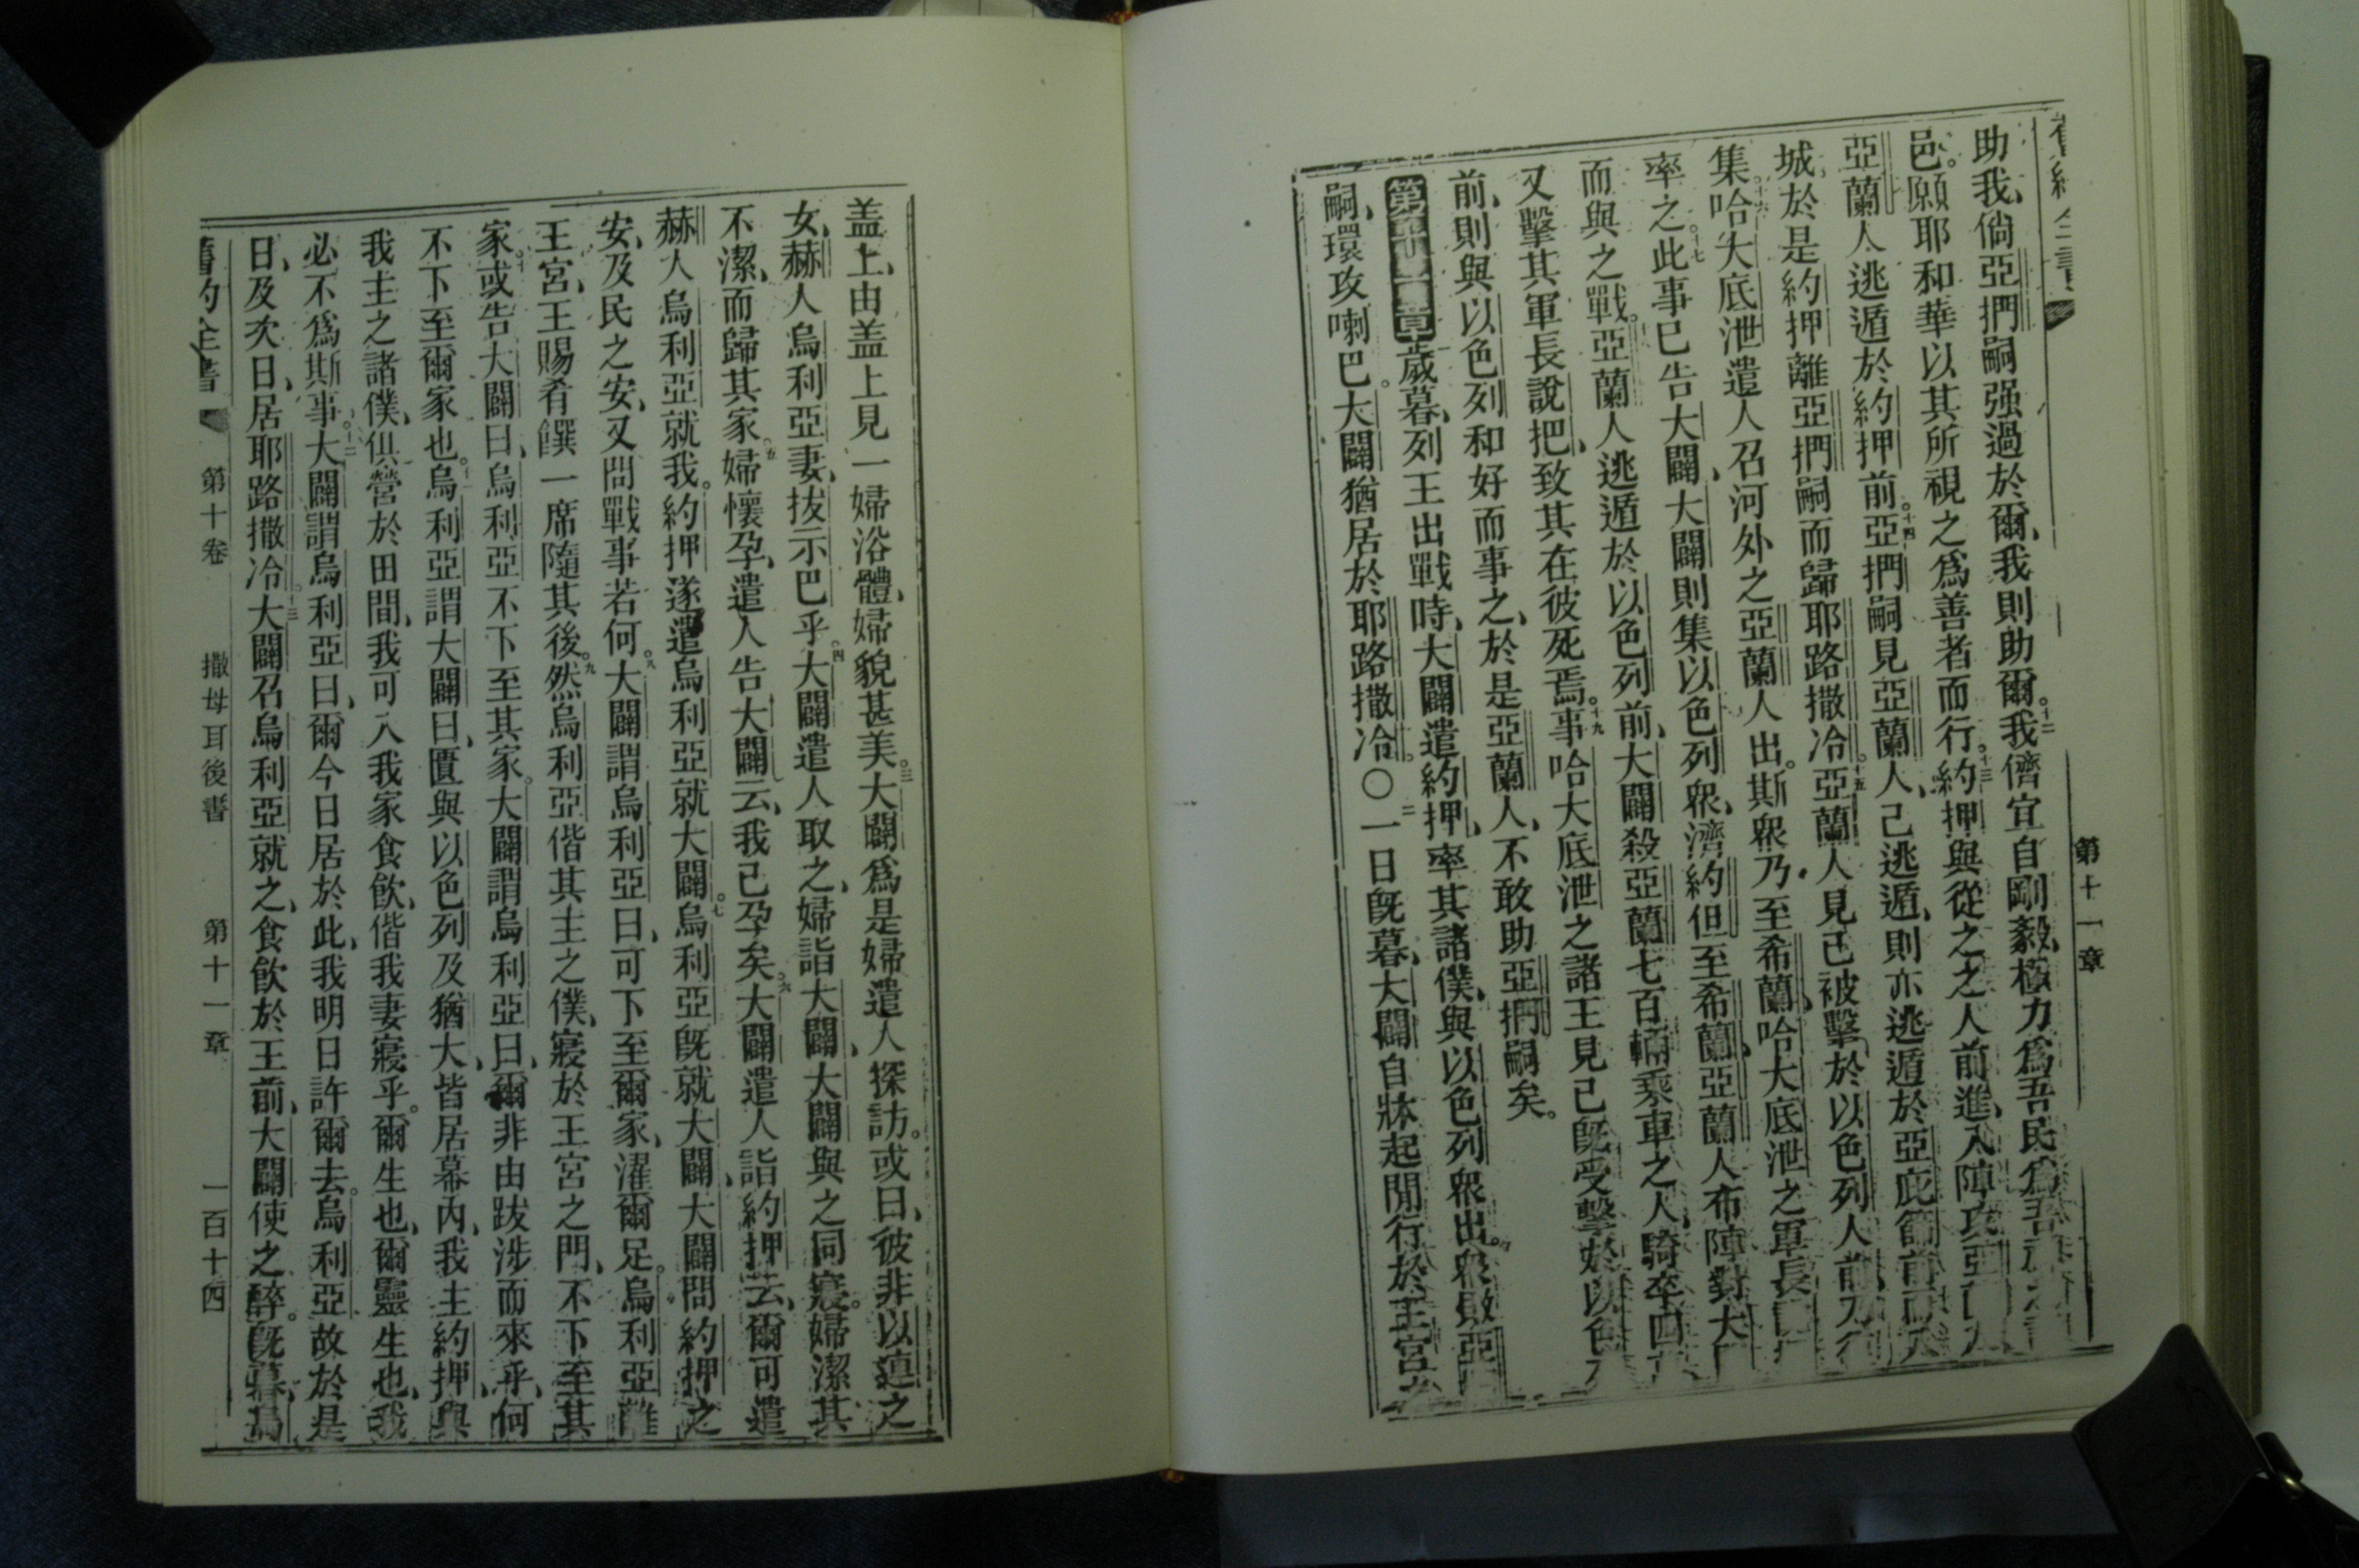 第十一章
助我、倘亞捫嗣强過於爾、我則助爾。十二我儕宜自剛毅、極力爲吾民、爲吾
邑。願耶和華以其所視之爲善者而行。十三約押與從之之人前進、入陣攻亞
亞蘭人逃遁於約押前。十四亞捫嗣見亞蘭人、已逃遁、則亦逃遁於亞庇篩前、而入
城、於是約押離亞捫嗣而歸耶路撒冷。十五亞蘭人見已被擊於以色列人前、乃
集。十六哈大底泄遣人召河外之亞蘭人出。斯衆乃至希蘭、哈大底泄之軍長
率之。十七此事已告大闢、大闢則集以色列衆、濟約但至希蘭、亞蘭人布陣對大
而與之戰。十八亞蘭人逃遁於以色列前、大闢殺亞蘭七百輛乘車之人、騎卒四
又擊其軍長說把、致其在彼死焉。十九事哈大底泄之諸王見已旣受擊於以色
前、則與以色列和好而事之、於是亞蘭人、不敢助亞捫嗣矣。
第十一章歲暮、列王出戰時、大闢遣約押、率其諸僕、與以色列衆出。衆敗亞
嗣、環攻喇巴。大闢猶居於耶路撒冷。〇二一日旣暮、大闢自牀起、閒行於王宮之
盖上、由盖上見一婦浴體、婦貌甚美。三大闢爲是婦遣人探訪。或曰、彼非以蓮之
女、赫人烏利亞妻、拔示巴乎。四大闢遣人取之、婦詣大闢、大闢與之同寢。婦潔其
不潔、而歸其家。五婦懷孕、遣人告大闢云、我已孕矣。六大闢遣人詣約押云、爾可遣
赫人烏利亞就我。約押遂遣烏利亞就大闢。七烏利亞旣就大闢、大闢問約押之
安、及民之安、又問戰事若何。八大闢謂烏利亞曰、可下至爾家、濯爾足。烏利亞離
王宮、王賜肴饌一席隨其後。九然烏利亞偕其主之僕、寢於王宮之門、不下至其
家。十或告大闢曰、烏利亞不下至其家。大闢謂烏利亞曰、爾非由跋涉而來乎、何
不下至爾家也。十一烏利亞謂大闢曰、匱與以色列及猶大、皆居幕內、我主約押、與
我主之諸僕、俱營於田間、我可入我家食飮、偕我妻寢乎。爾生也、爾靈生也、我
必不爲斯事。十二大闢謂烏利亞曰、爾今日居於此、我明日許爾去。烏利亞故於是
日、及次日、居耶路撒冷。十三大闢召烏利亞就之、食飮於王前、大闢使之醉。旣暮、烏
舊約全書　第十卷　撒母耳後書　第十一章　一百十四